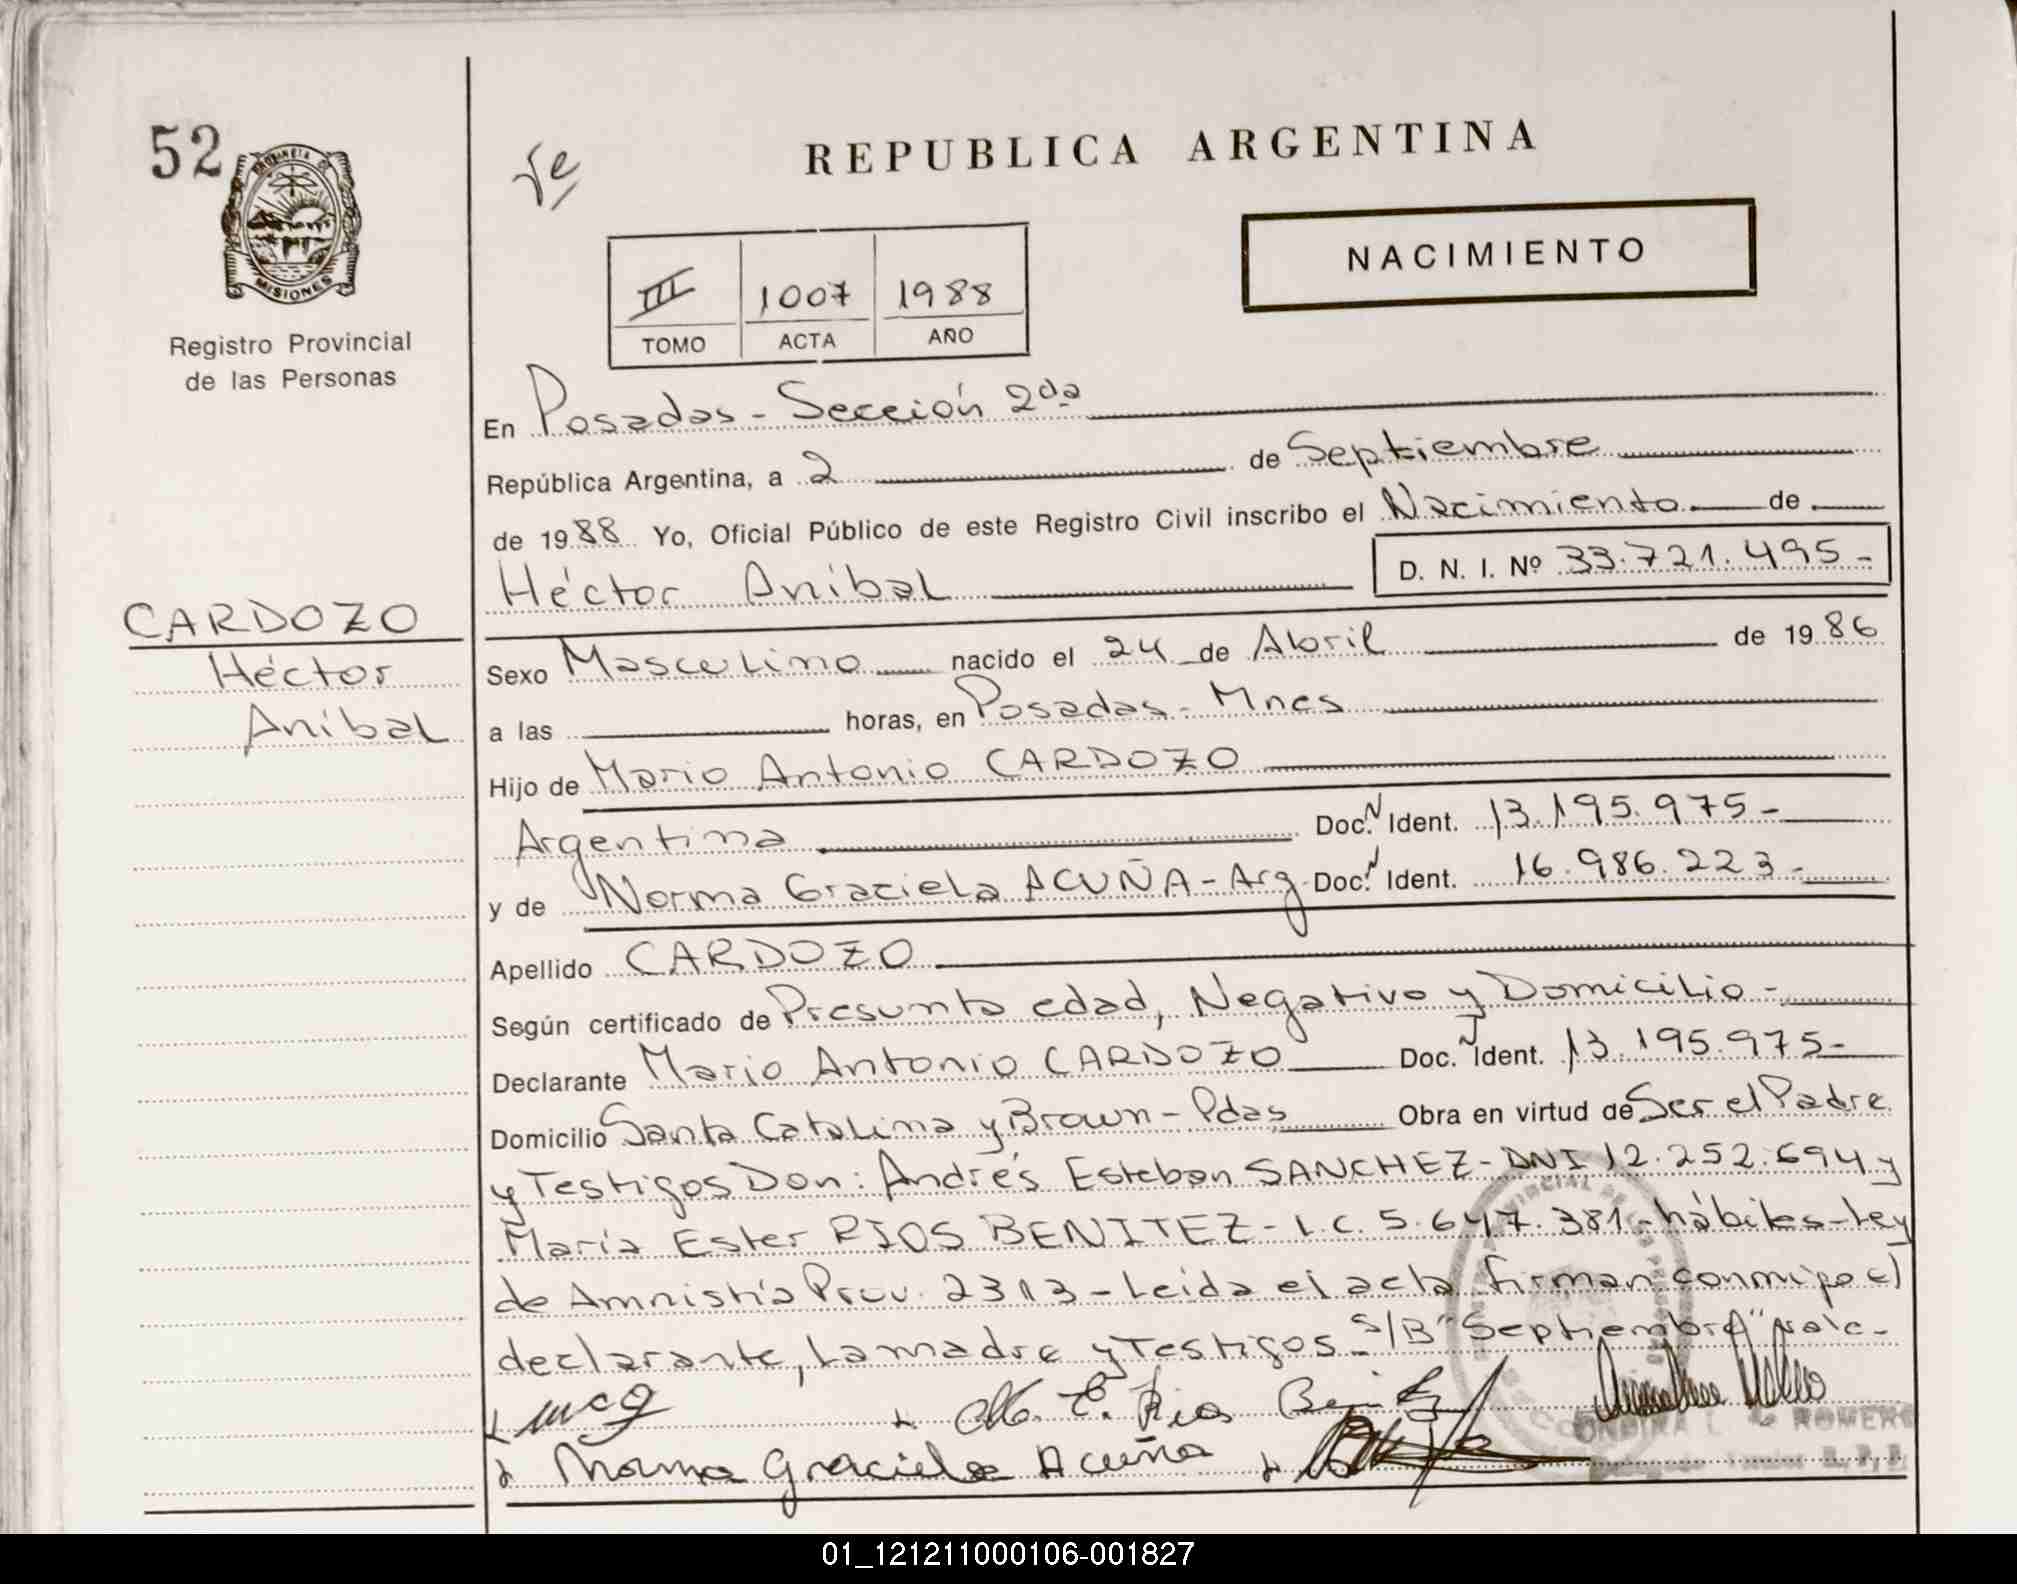 52
PROVINCIA DE
MISIONES
Registro Provincial
de las Personas
REPUBLICA ARGENTINA
NACIMIENTO
III 1007 1988
TOMO ACTA AÑO
En Posadas - Sección 2da
República Argentina, a 2 de Septiembre
de 1988 Yo, Oficial Público de este Registro Civil inscribo el Nacimiento de
Héctor Aníbal D. N. I. Nº 33.721.495-
CARDOZO
Héctor
Aníbal
Sexo Masculino nacido el 24 de Abril de 1986
a las horas, en Posadas - Mnes
Hijo de Mario Antonio CARDOZO
Argentina Doc. N Ident. 13.195.975-
y de Norma Graciela ACUÑA - Arg Doc. N Ident. 16.986.223-
Apellido CARDOZO
Según certificado de Presunta edad, Negativo y Domicilio -
Declarante Mario Antonio CARDOZO Doc. N Ident. 13.195.975-
Domicilio Santa Catalina y Brown - Pdas Obra en virtud de Ser el Padre
y Testigos Don: Andrés Esteban SANCHEZ - DNI 12.252.694 y
María Ester RIOS BENITEZ - L.C. 5.647.381 - hábiles - Ley
de Amnistía Prov. 2313 - Leida el acta firman conmigo el
declarante, la madre y Testigos - S/B "Septiembre" vale -
M. E. Rios Benitez
Norma Graciela Acuña
ROMERO
01_121211000106-001827